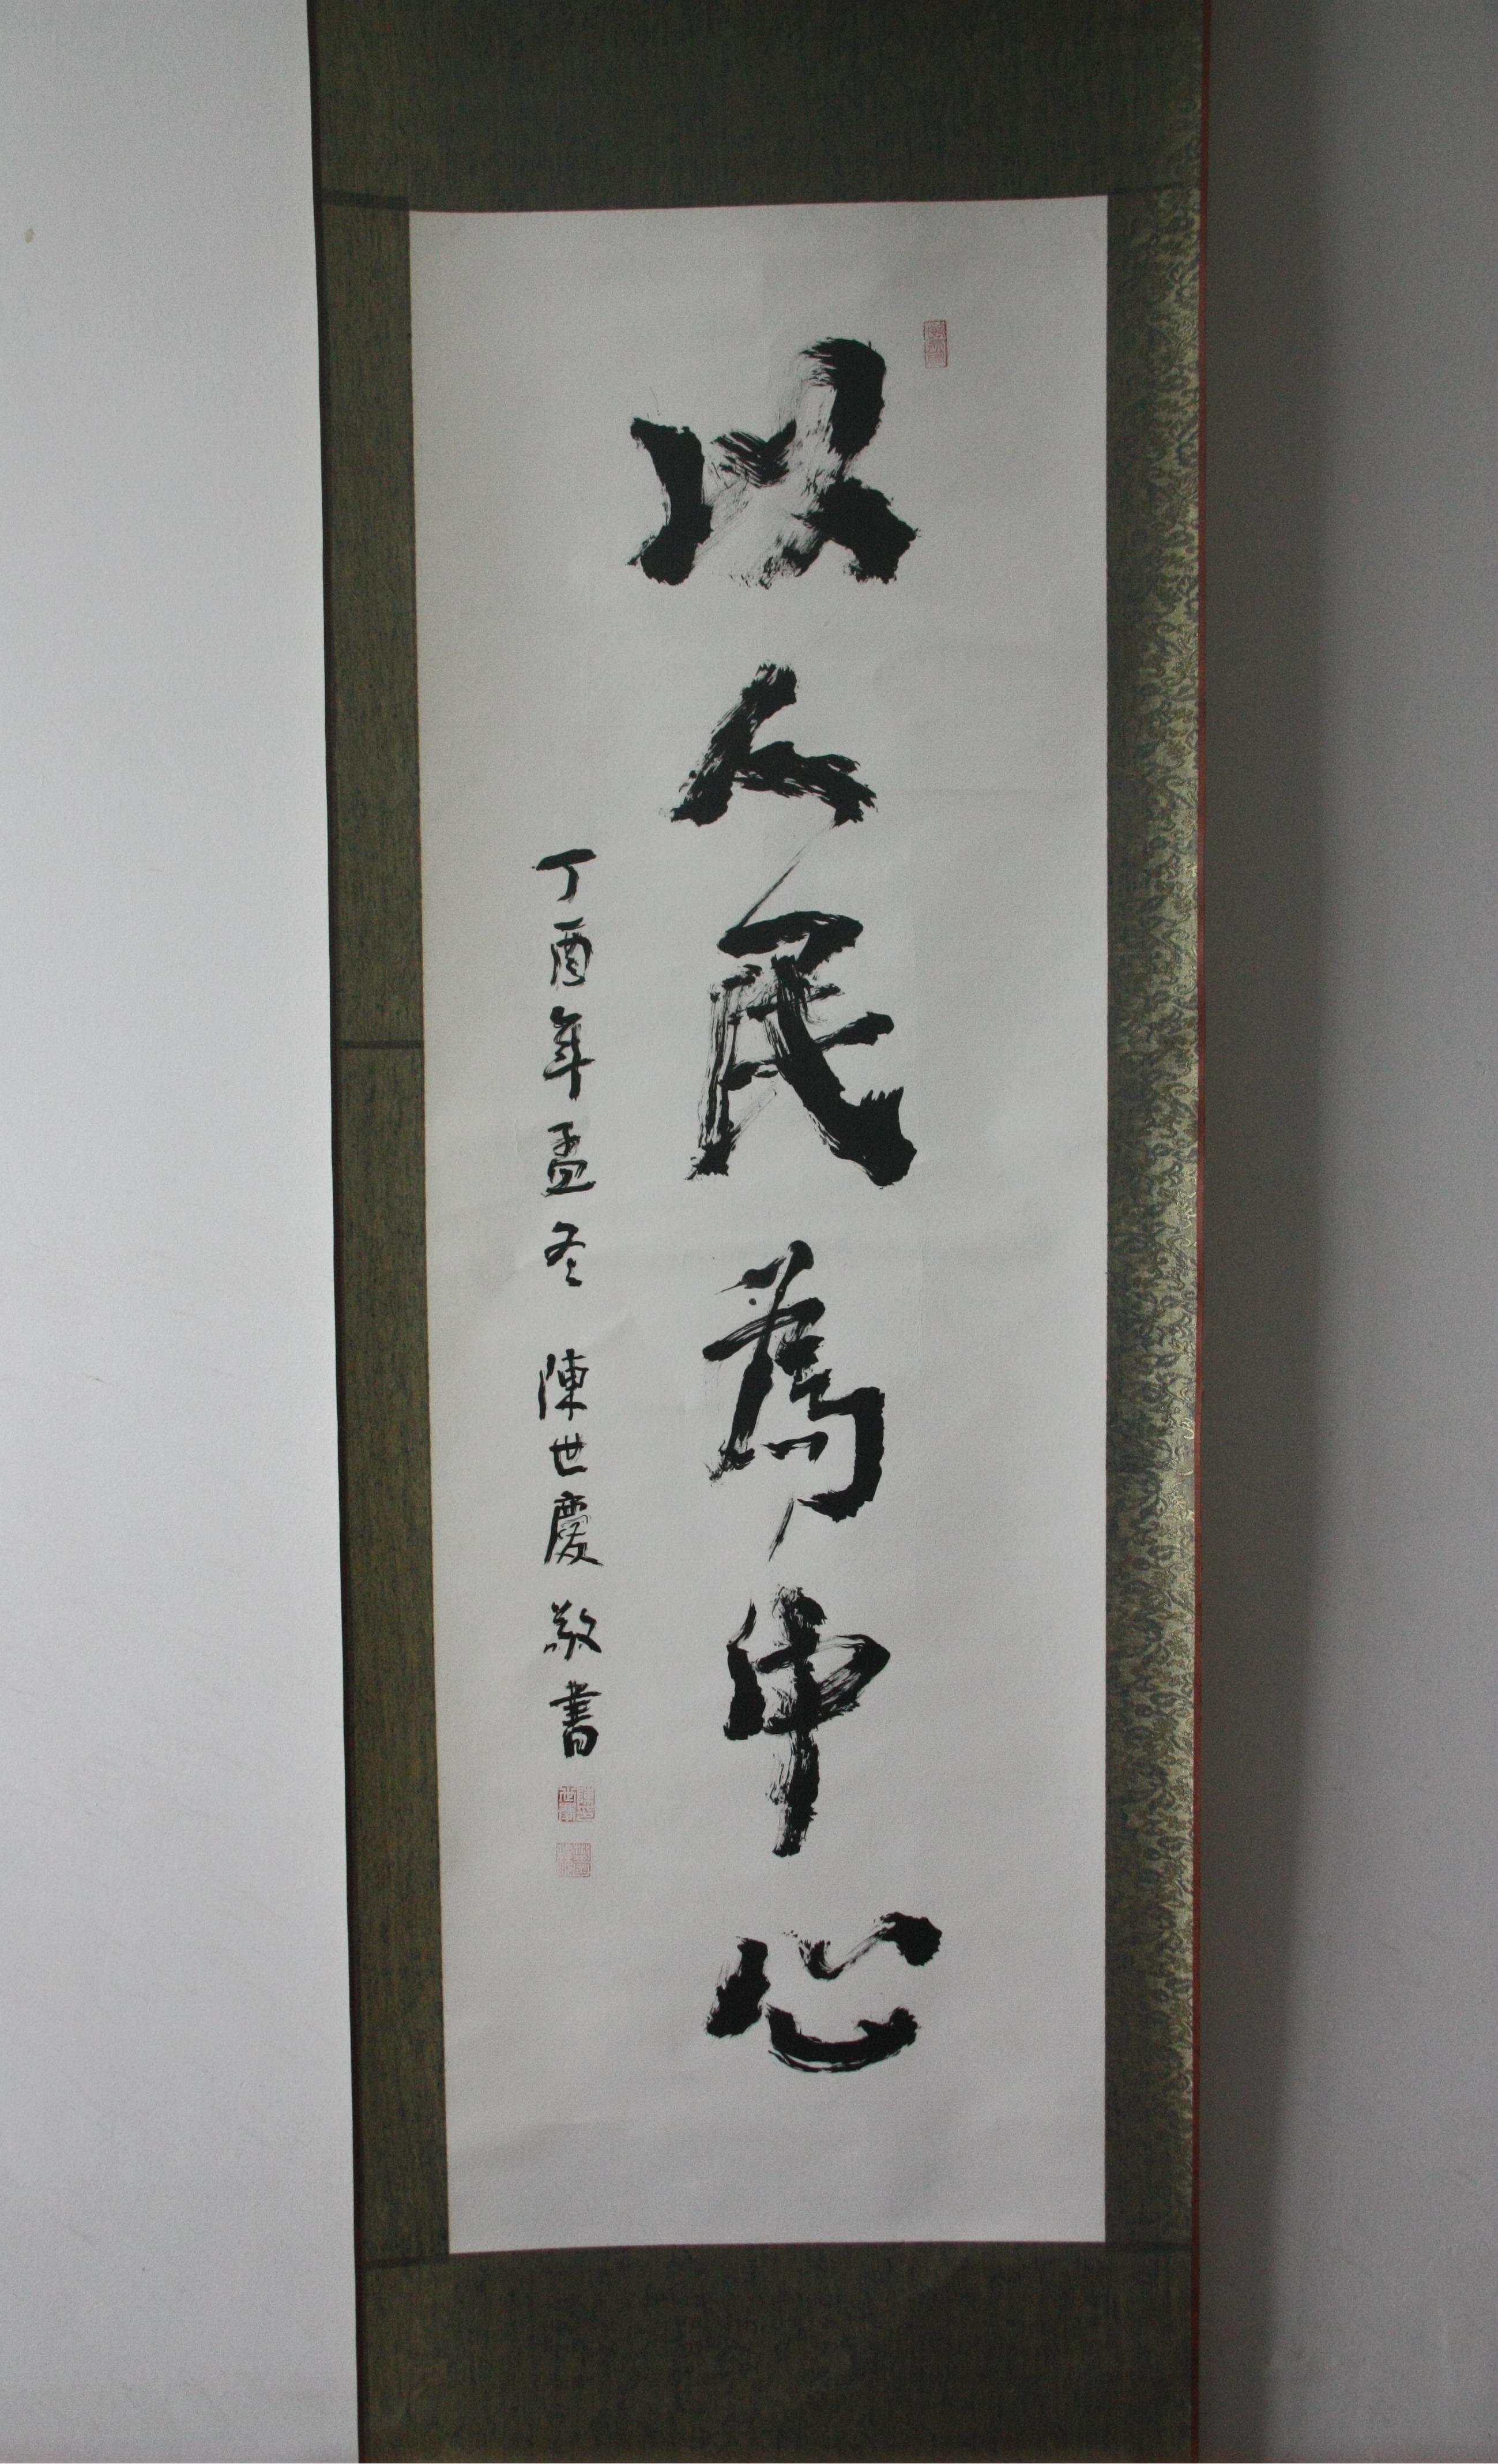 以人民為中心
丁酉年孟冬 陳世慶敬書